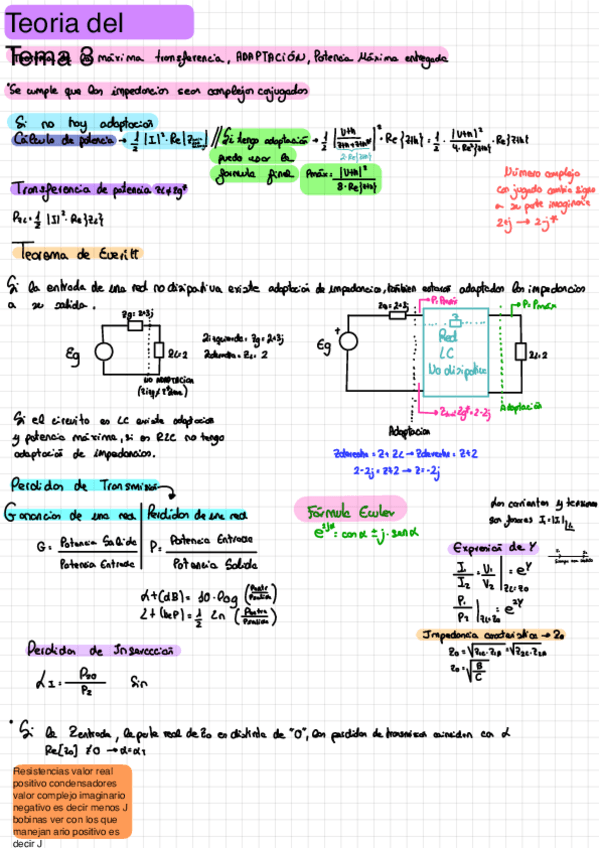 Teoria del
Tema 8
máxima transferencia, ADAPTACIÓN, Potencia Máxima entregada
*Se cumple que las impedancias sean complejas conjugadas
Si no hay adaptación
Cálculo de potencia → 1/2 |I|²·Re|Z| // Si tengo adaptación → 1/2 |Uth/(Zth+Zth*)|² · Re{Zth} = 1/2 · |Uth|²/(4·Re²{Zth}) · Re{Zth}
2·Re{Zth}
puedo usar la
fórmula final Pmáx = |Uth|²/(8·Re{Zth})
Número complejo
conjugado cambia signo
a su parte imaginaria
2+j → 2-j*
Transferencia de potencia ZL≠Zg*
PZL = 1/2 |I|²·Re{ZL}
Teorema de Everitt
Si la entrada de una red no disipativa existe adaptación de impedancias, también estarán adaptadas las impedancias
a su salida.
Zg=2+3j
Eg
ZL=2
NO ADAPTACION
Zizquierda = Zg = 2+3j
Zderecha = ZL = 2
Zg=2+2j
P=Pmáx
P=Pmáx
Eg
+
Z
Red
LC
No disipativa
ZL=2
Zg*=2-2j
Adaptación
Adaptacion
Zderecha = Z+ZL → Zderecha = Z+2
2-2j = Z+2 → Z=-2j
Si el circuito es LC existe adaptación
y potencia máxima, si es RLC no tengo
adaptación de impedancias.
Perdidas de Transmisión
Ganancias de una red | Perdidas de una red
G = Potencia Salida / Potencia Entrada
P = Potencia Entrada / Potencia Salida
αt(dB) = 10·log (Pentr/Psalida)
αt(NeP) = 1/2 Ln (Pentra/Psalida)
Fórmula Euler
e^±jα = cosα ± j·senα
Las corrientes y tensiones
son fasores I=|I|
Expresión de γ
I₁/I₂ = U₁/V₂ |ZL=Z0 = e^γ
P₁/P₂ |ZL=Z0 = e^2γ
Impedancia característica → Z0
Z0 = √(B/C)
Perdidas de Inserccción
αI = P20/P2 Sin
* Si la Zentrada, la parte real de Z0 es distinta de "0", las perdidas de transmisión coinciden con α
Re[Z0] ≠ 0 → α=αt
Resistencias valor real
positivo condensadores
valor complejo imaginario
negativo es decir menos J
bobinas ver con los que
manejan ario positivo es
decir J